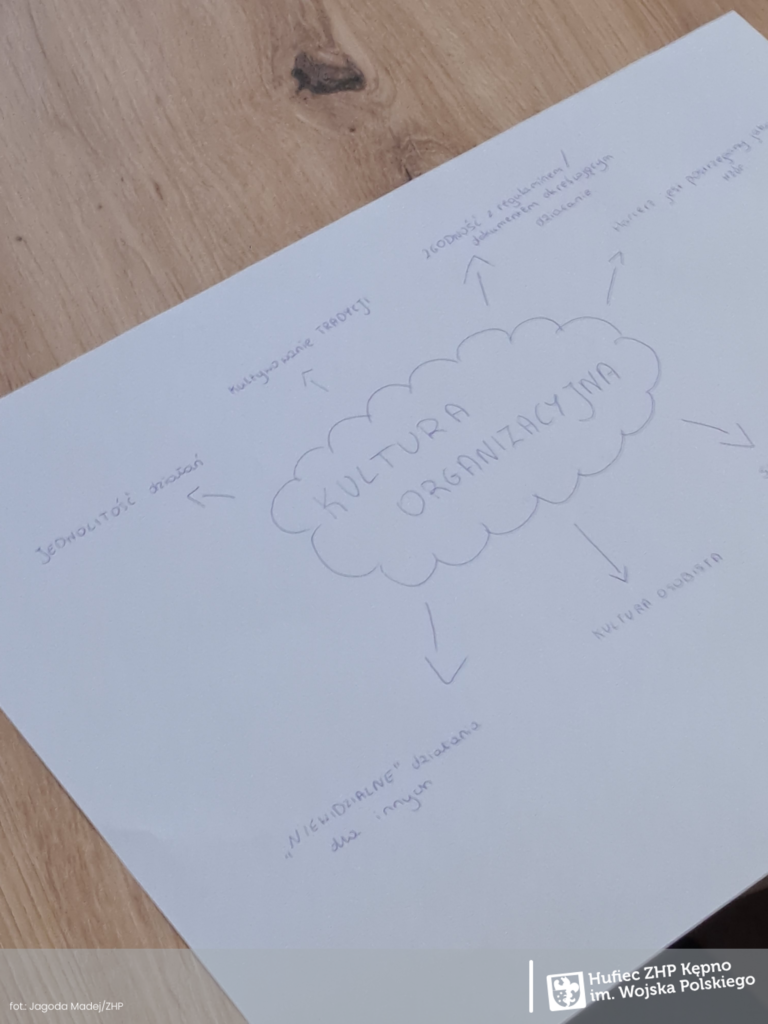 ZGODNOŚĆ z regulaminem/
dokumentem określającym
działanie
jest postrzegany jako
Kultywowanie TRADYCJI
KULTURA
ORGANIZACYJNA
JEDNOLITOŚĆ działań
KULTURA OSOBISTA
„NIEWIDZIALNE" działania
dla innych
fot.: Jagoda Madej/ZHP
Hufiec ZHP Kępno
im. Wojska Polskiego